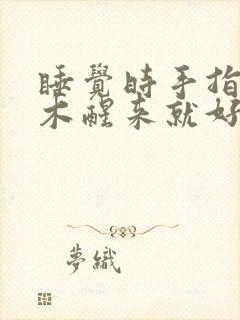 睡覺時手指
木醒来就好
夢織